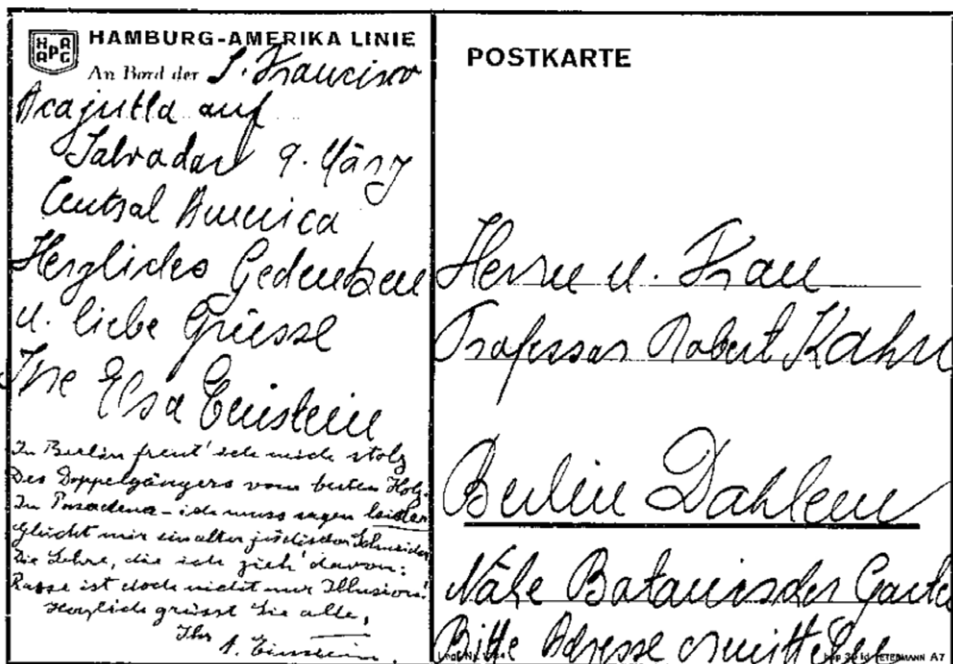 HAPAG
HAMBURG-AMERIKA LINIE
An Bord der S. Francisco
Acajutla auf
Salvador 9. März
Central America
Herzliches Gedenken
u. liebe Grüsse
Ihre Elsa Einstein
In Berlin freut' ich mich stolz
Des Doppelgängers vom besten Holz
In Pasadena – ich muss sagen leider
Glückt mir ein alter jüdischer Schneider
Die Lehre, die ich zieh' davon:
Rasse ist doch nicht nur Illusion!
Herzlich grüsst Sie alle,
Ihr A. Einstein.
POSTKARTE
Herrn u. Frau
Professor Robert Kahn
Berlin Dahlem
Nähe Botanischer Garten
Bitte Adresse ermitteln
PETERMANN A7